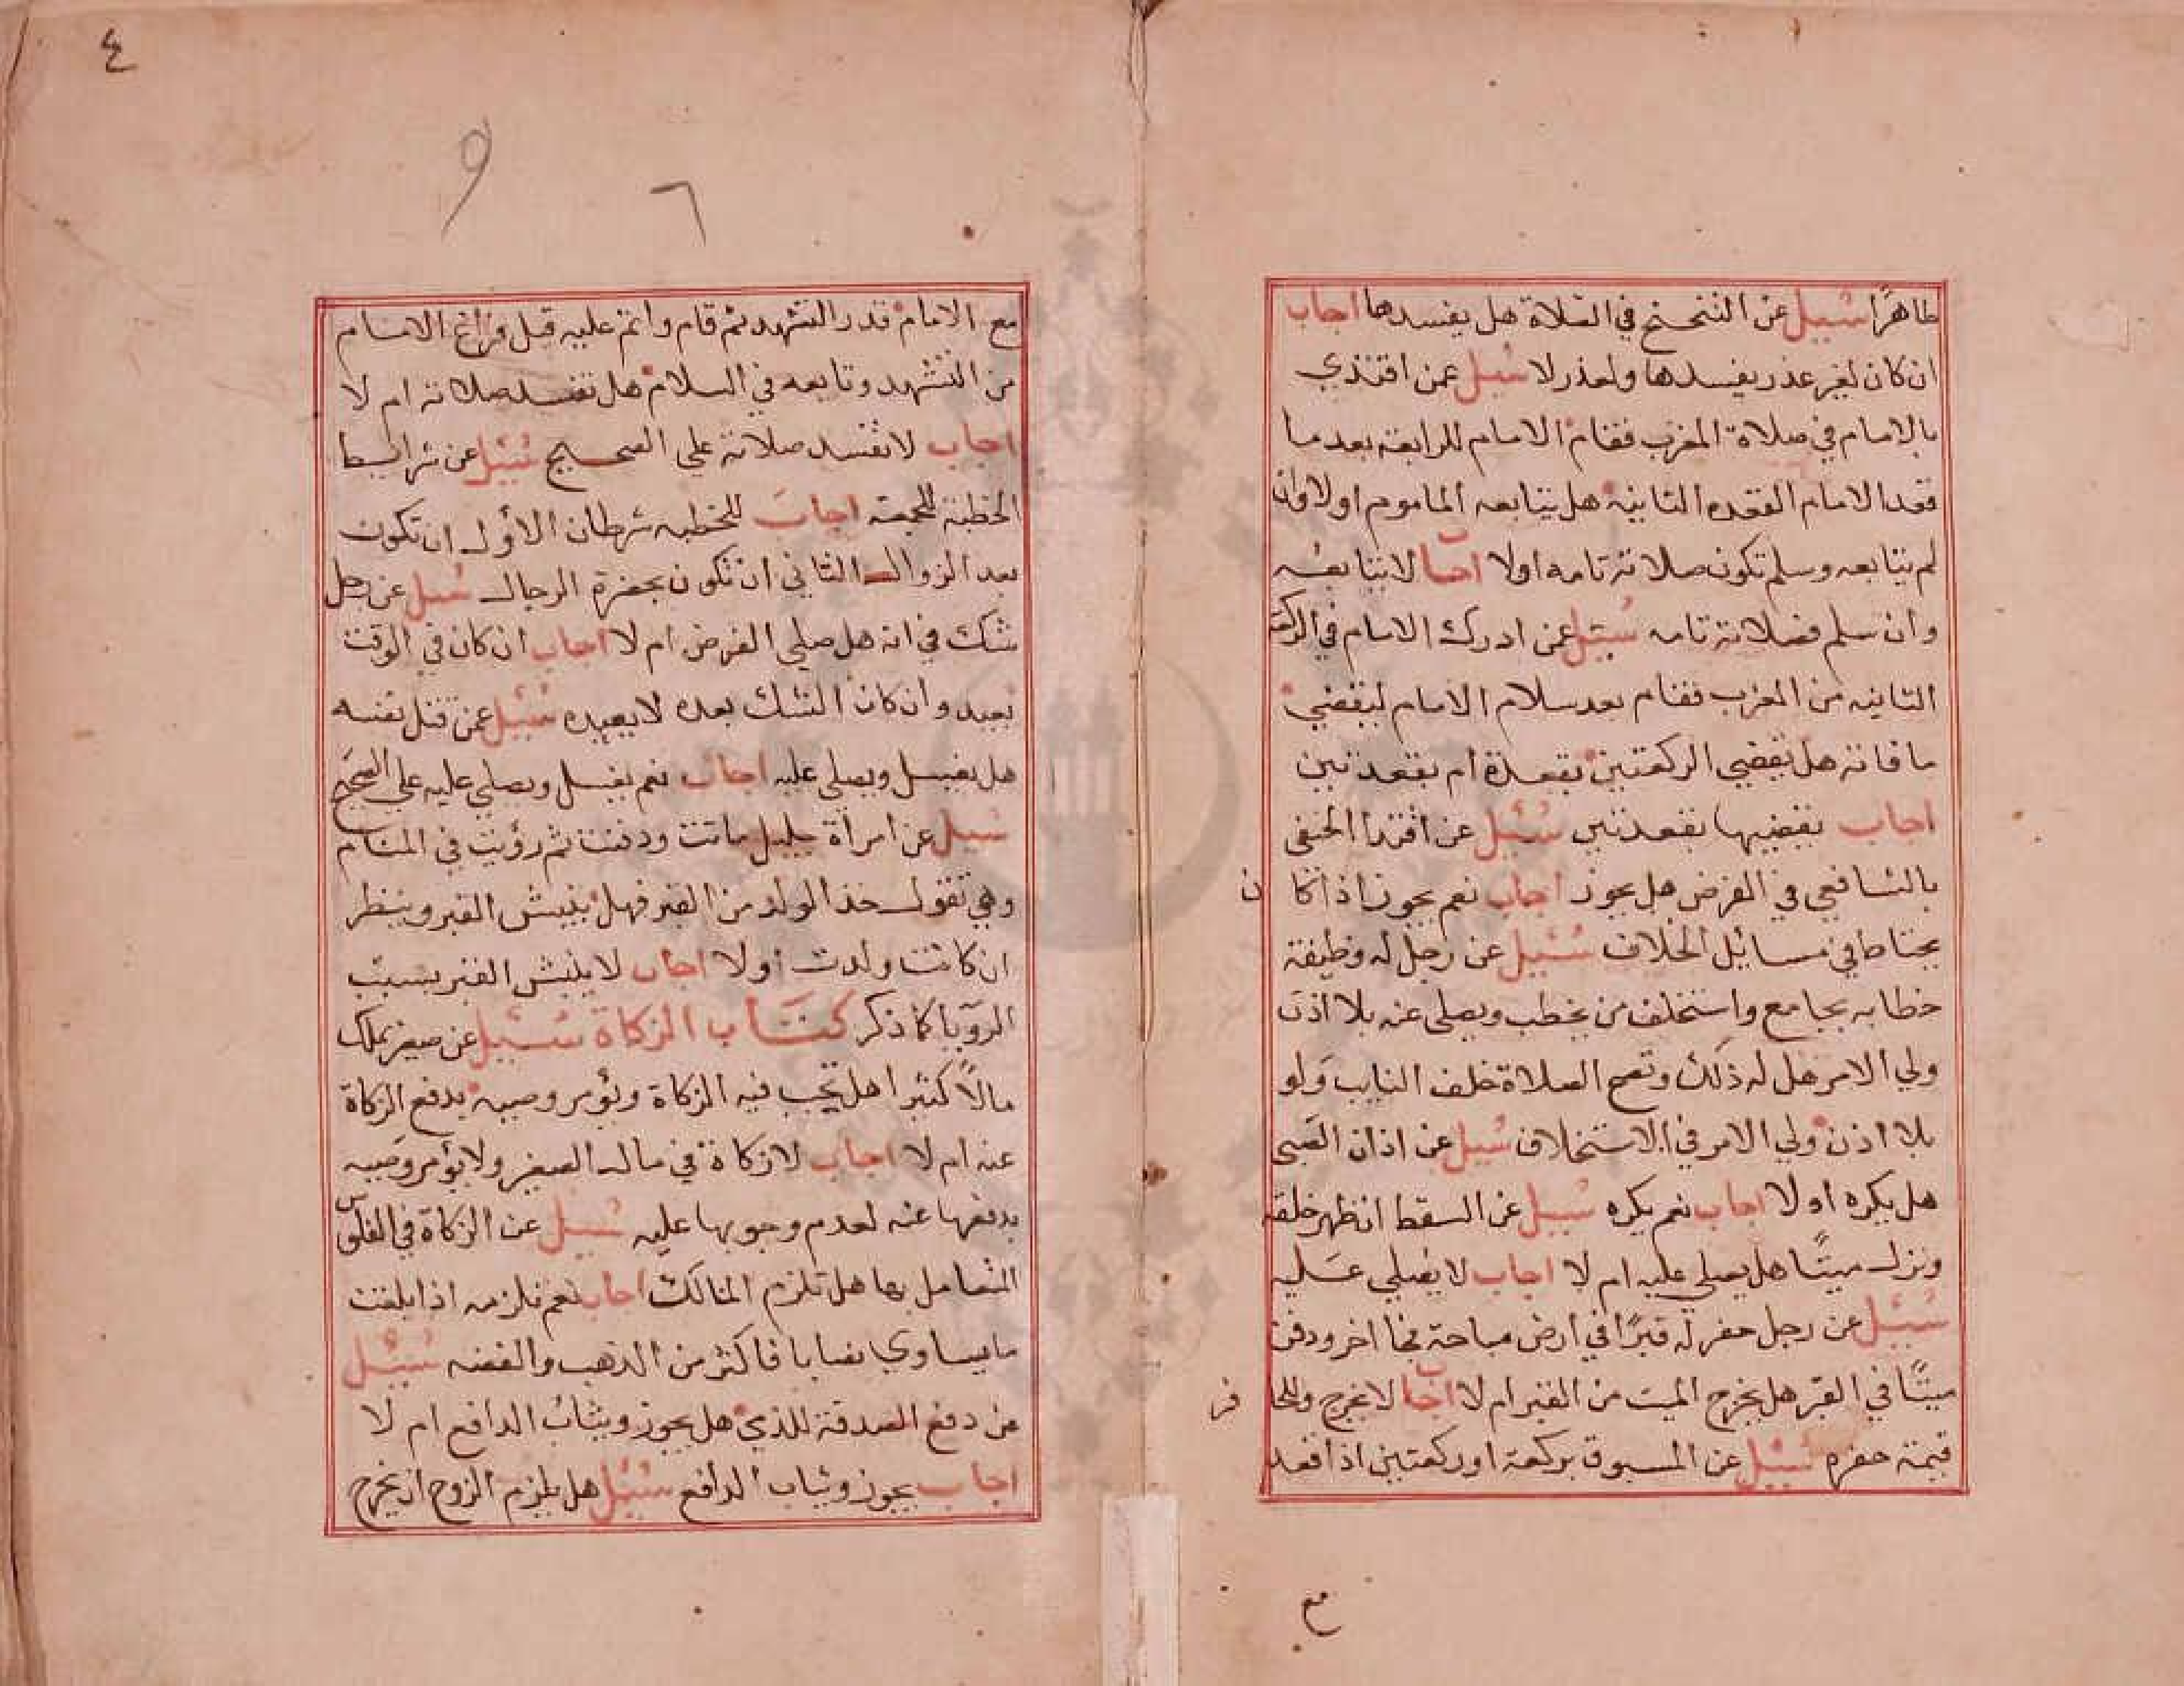 طاهرًا سُيل عن التنحنح في الصلاة هل يفسدها اجاب
ان كان لغير عذر يفسدها ولعذر لا سُيل عمن اقتدي
بالامام في صلاة المغرب فقام الامام للرابعة بعد ما
قعد الامام القعده الثانيه هل يتابعه الماموم اولا وان
لم يتابعه وسلم تكون صلاته تامه اولا اجاب لا يتابعه
وان سلم فصلاته تامه سئيل عمن ادرك الامام في الركعة
الثانيه من المغرب فقام بعد سلام الامام ليقضي
ما فاته هل يقضي الركعتين بقعدة ام بقعدتين
اجاب يقضيها بقعدتين سُئيل عن اقتدا الحنفي
بالشافعي في الفرض هل يجوز اجاب نعم يجوز اذا كان
يحتاط في مسايل الخلاف سُئيل عن رجل له وظيفة
خطابه بجامع واستخلف من يخطب ويصلي عنه بلا اذن
ولي الامر هل له ذلك وتصح الصلاة خلف النايب ولو
بلا اذن ولي الامر في الاستخلاف سُيل عن اذان الصبي
هل يكره اولا اجاب نعم يكره سُيل عن السقط ان ظهر خلقه
ونزل ميتًا هل يصلي عليه ام لا اجاب لا يصلي عليه
سُئيل عن رجل حفر له قبرًا في ارض مباحة فجا اخر ودفن
ميتًا في القبر هل يخرج الميت من القبر ام لا اجاب لا يخرج وللحافر
قيمة حفره سُئيل عن المسبوق بركعة او ركعتين اذا قعد
مع
٤
9 ٦
مع الامام قدر التشهد ثم قام واتم عليه قبل فراغ الامام
من التشهد وتابعه في السلام هل تفسد صلاته ام لا
اجاب لا تفسد صلاته علي الصحيح سُئيل عن شرايط
الخطبة للجمعة اجاب للخطبه شرطان الاول ان تكون
بعد الزوال الثاني ان تكون بحضرة الرجال سُيل عن رجل
شك في انه هل صلي الفرض ام لا اجاب ان كان في الوقت
يعيد وان كان الشك بعده لا يعيده سُئيل عمن قتل نفسه
هل يغسل ويصلي عليه اجاب نعم يغسل ويصلي عليه علي الصحيح
سُيل عن امراة ماتت ودفنت ثم رؤيت في المنام
وهي تقول خذ الولد من القبر فهل ينبش القبر وينظر
ان كانت ولدت اولا اجاب لا ينبش القبر بسبب
الرؤيا كما ذكر كتاب الزكاة سئيل عن صغير يملك
مالاً كثيرا هل تجب فيه الزكاة ويؤمر وصيه بدفع الزكاة
عنه ام لا اجاب لا زكاة في مال الصغير ولا يؤمر وصيه
بدفعها عنه لعدم وجوبها عليه سُيل عن الزكاة في الفلوس
المتعامل بها هل تلزم المالك اجاب نعم تلزمه اذا بلغت
ما يساوي نصابا فاكثر من الذهب والفضه سُئيل
عن دفع الصدقة للذي هل يجوز ويثاب الدافع ام لا
اجاب يجوز ويثاب الدافع سُئيل هل يلزم الزوج ان يخرج